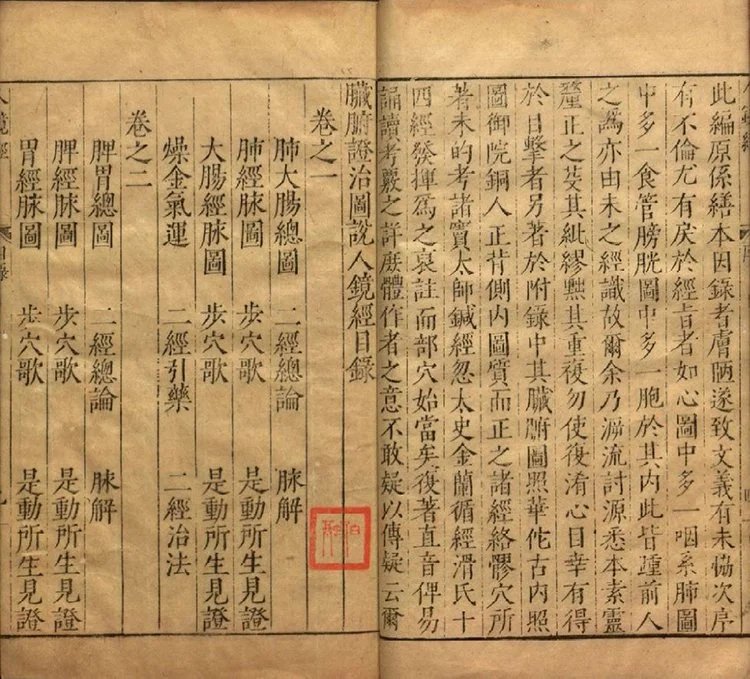 此編原係繕本因錄者膚陋遂致文義有未協次序
有不倫尤有戾於經旨者如心圖中多一咽系肺圖
中多一食管膀胱圖中多一胞於其內此皆踵前人
之譌亦由未之經識故爾余乃溯流討源悉本素靈
釐正之芟其紕繆黜其重複勿使復淆心目幸有得
於目擊者另著於附錄中其臟腑圖照華佗古內照
圖御院銅人正背側內圖質而正之諸經絡髎穴所
著未的考諸竇太師鍼經忽太史金蘭循經滑氏十
四經發揮為之裒註而部穴始當矣復著直音俾易
誦讀考覈之詳庶體作者之意不敢疑以傳疑云爾
臟腑證治圖說人鏡經目錄
卷之一
肺大腸總圖 二經總論 脉解
肺經脉圖 步穴歌 是動所生見證
大腸經脉圖 步穴歌 是動所生見證
燥金氣運 二經引藥 二經治法
卷之二
脾胃總圖 二經總論 脉解
脾經脉圖 步穴歌 是動所生見證
胃經脉圖 步穴歌 是動所生見證
人鏡經 目錄